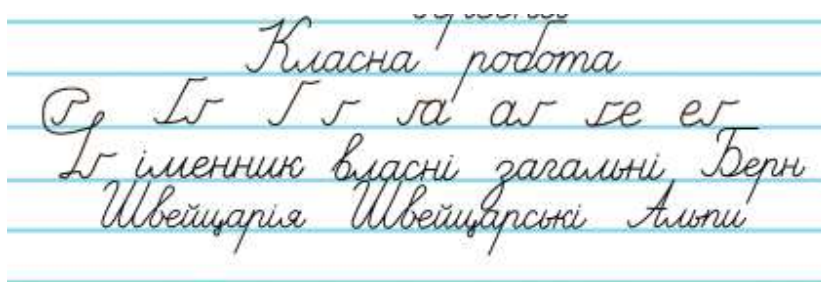 Класна робота
Ґґ Г г га аг ге ег
Ґґ іменник власні загальні Берн
Швейцарія Швейцарські Альпи